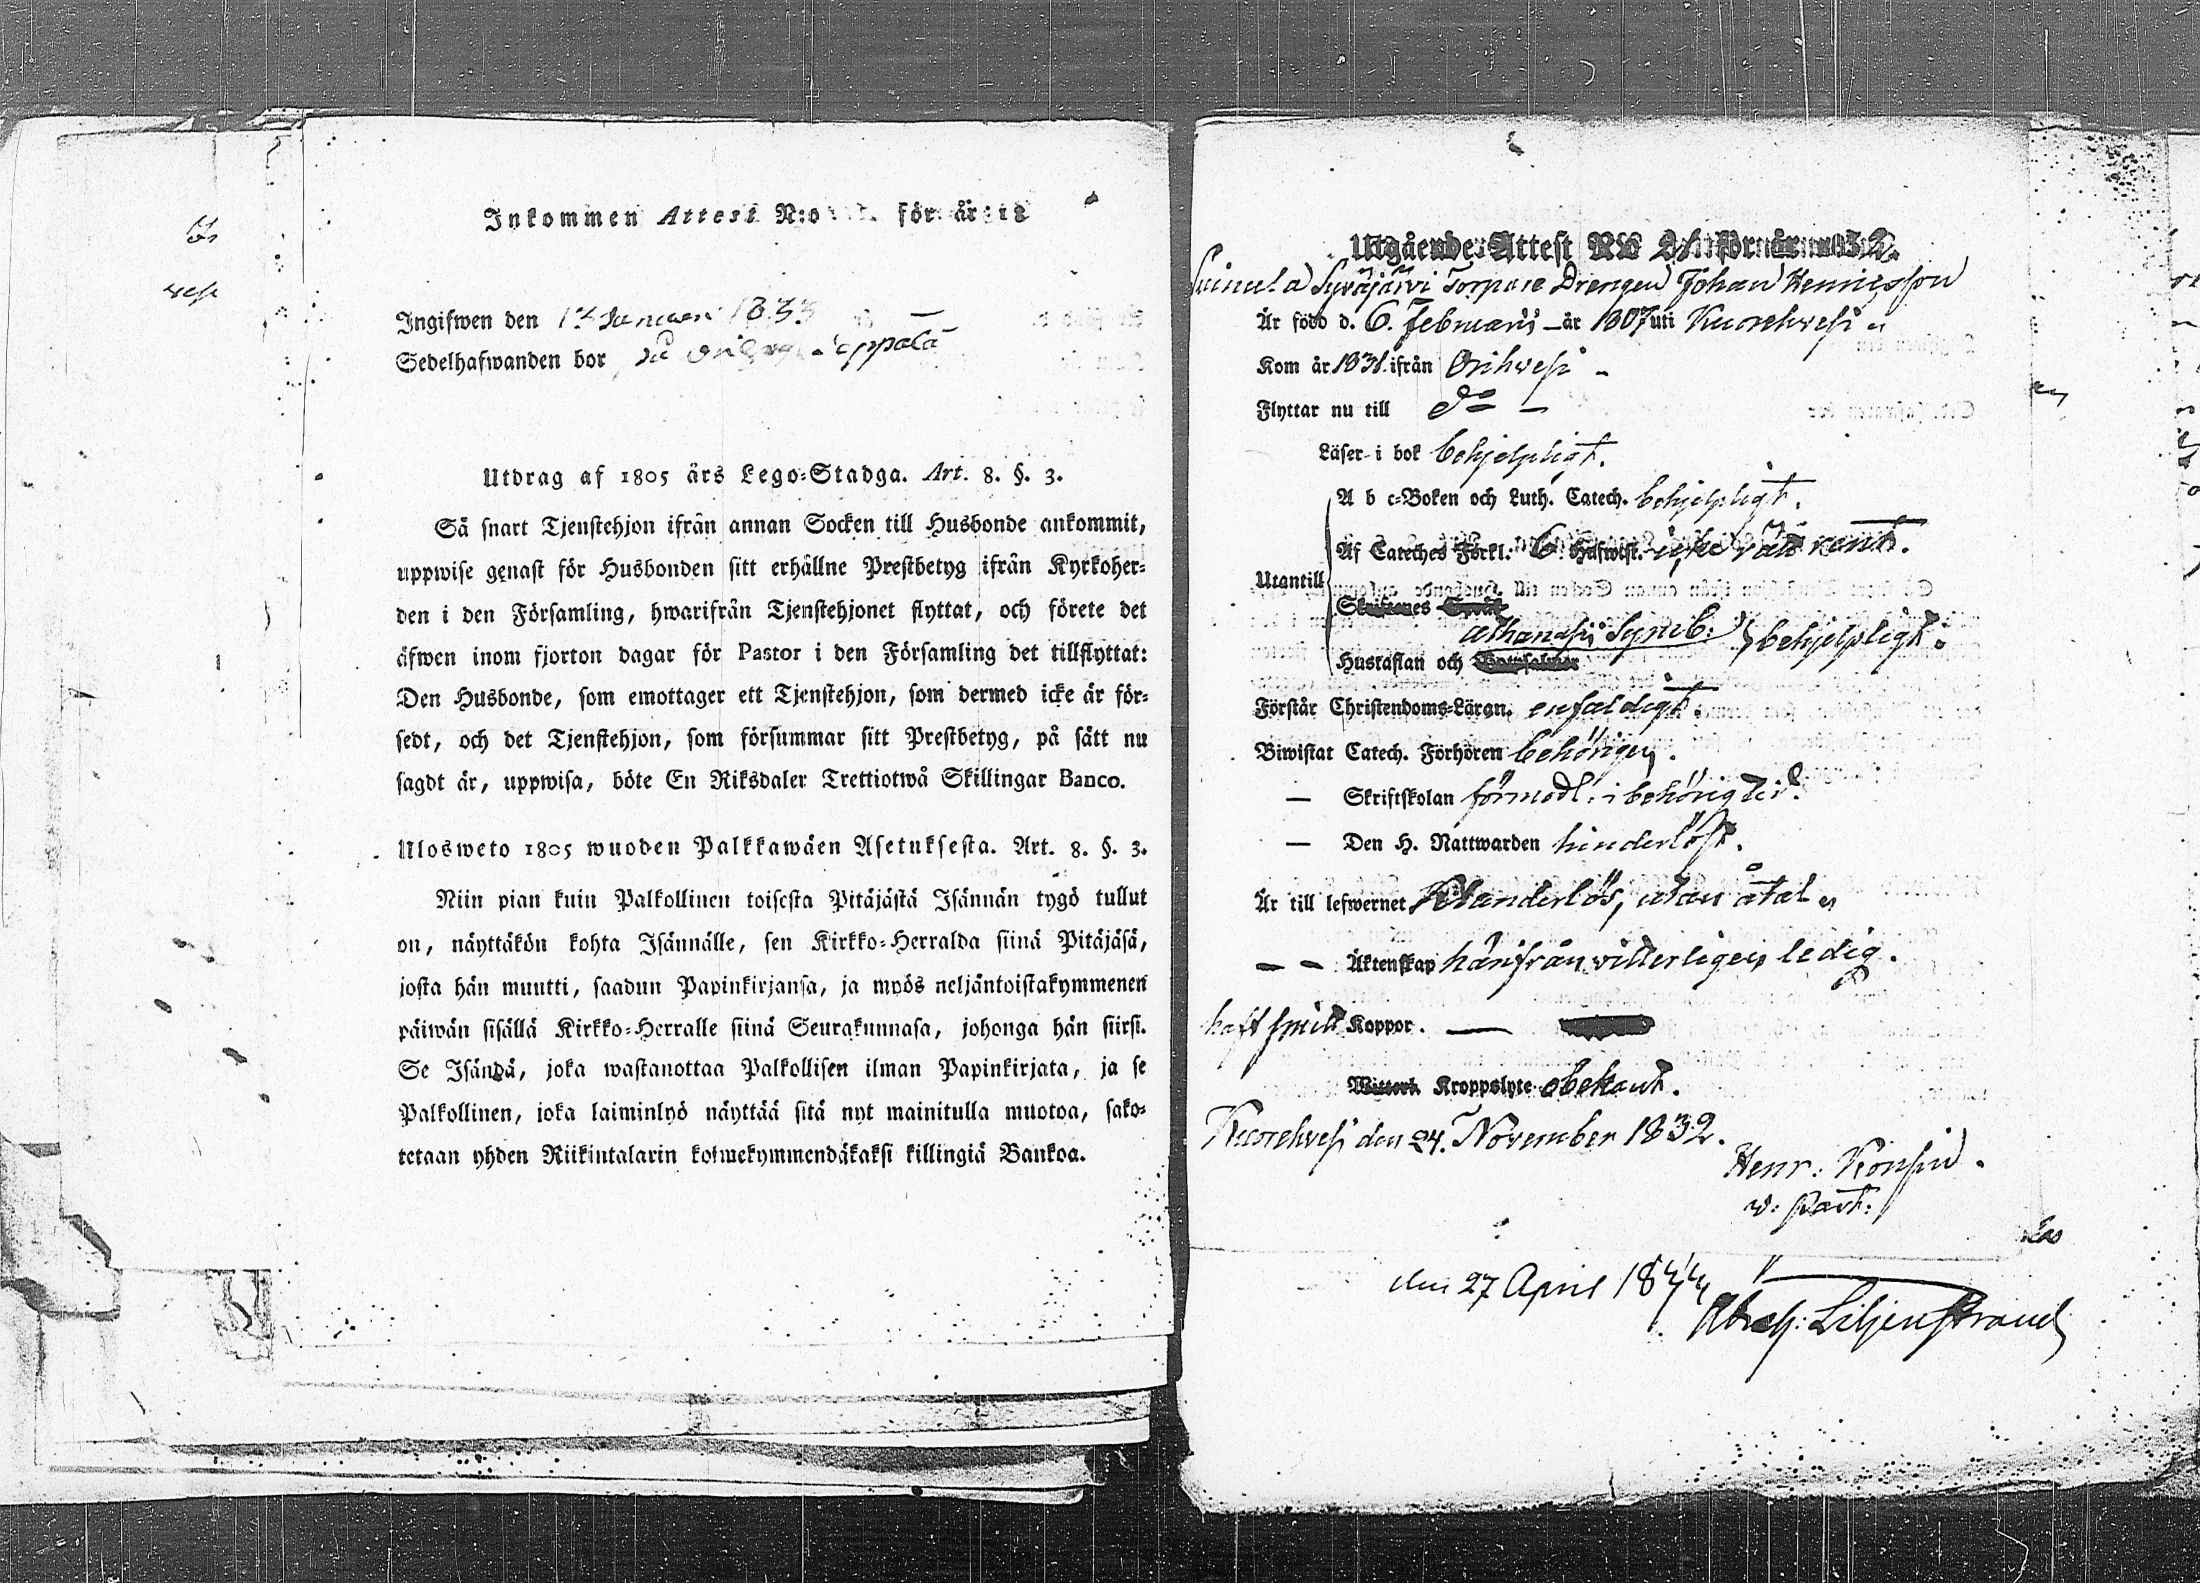 Inkommen Attest N:o för år
Ingifwen den 1 Januari 1833
Sedelhafwanden bor
Utdrag af 1805 års Lego-Stadga. Art. 8. §. 3.
Så snart Tjenstehjon ifrån annan Socken till Husbonde ankommit,
uppwise genast för Husbonden sitt erhållne Prestbetyg ifrån Kyrkoher-
den i den Församling, hwarifrån Tjenstehjonet flyttat, och förete det
äfwen inom fjorton dagar för Pastor i den Församling det tillflyttat:
Den Husbonde, som emottager ett Tjenstehjon, som dermed icke är för-
sedt, och det Tjenstehjon, som försummar sitt Prestbetyg, på sätt nu
sagdt är, uppwisa, böte En Riksdaler Trettiotwå Skillingar Banco.
Ulosweto 1805 wuoden Palkkawäen Asetuksesta. Art. 8. §. 3.
Niin pian kuin Palkollinen toisesta Pitäjästä Isännän tygö tullut
on, näyttäkön kohta Isännälle, sen Kirkko-Herralda siinä Pitäjäsä,
josta hän muutti, saadun Papinkirjansa, ja myös neljäntoistakymmenen
päiwän sisällä Kirkko-Herralle siinä Seurakunnasa, johonga hän siirsi.
Se Isändä, joka wastanottaa Palkollisen ilman Papinkirjata, ja se
Palkollinen, joka laiminlyö näyttää sitä nyt mainitulla muotoa, sako-
tetaan yhden Riikintalarin kolmekymmendäkaksi killingiä Bankoa.
Utgående Attest No för år 1832.
Syväjärvi Torpare Drengen Johan Henricsson
Är född d. 6. Februarii – år 1807 uti Kuorehvesi
Kom år 1831. ifrån Orihvesi –
Flyttar nu till do –
Läser i bok behjelpligt.
A b c-Boken och Luth. Catech. behjelpligt.
Utantill
Af Cateches Förkl. 6 Hufwist. icke rätt rent.
Athanasii Symb. behjelpligt.
Hustaflan och
Förstår Christendoms-Läran, enfaldigt.
Biwistat Catech. Förhören behörigen.
— Skriftskolan förmodl. i behörig tid.
— Den H. Nattwarden hinderlöst.
Är till lefwernet Klanderlös, utan åtal
— — Äktenskap härifrån vitterligen ledig.
haft Koppor. —
Kroppslyte obekant.
Kuorehvesi den 24. November 1832.
Henr. Konsin.
v. Past.
den 27 April 1844
Abrah: Liljenstrand